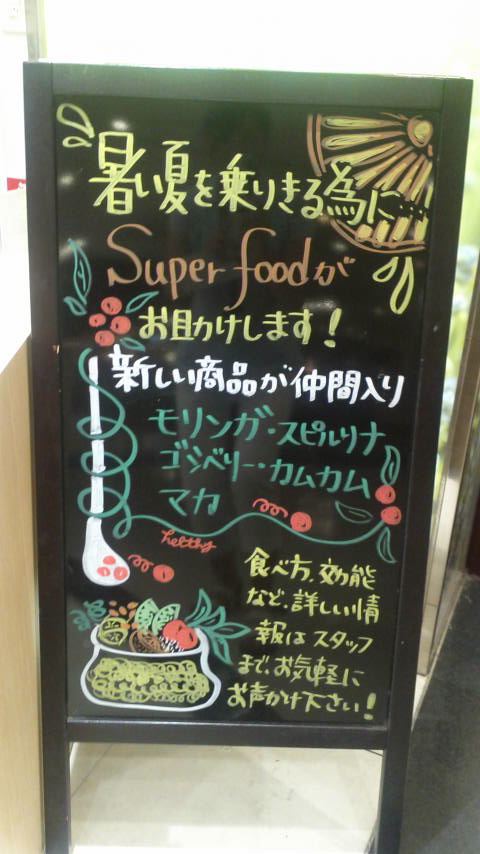 暑い夏を乗りきる為に…
Super foodが
お助けします!
新しい商品が仲間入り
モリンガ・スピルリナ
ゴジベリー・カムカム
マカ
食べ方、効能
など、詳しい情
報は スタッフ
まで、お気軽に
お声かけ下さい!